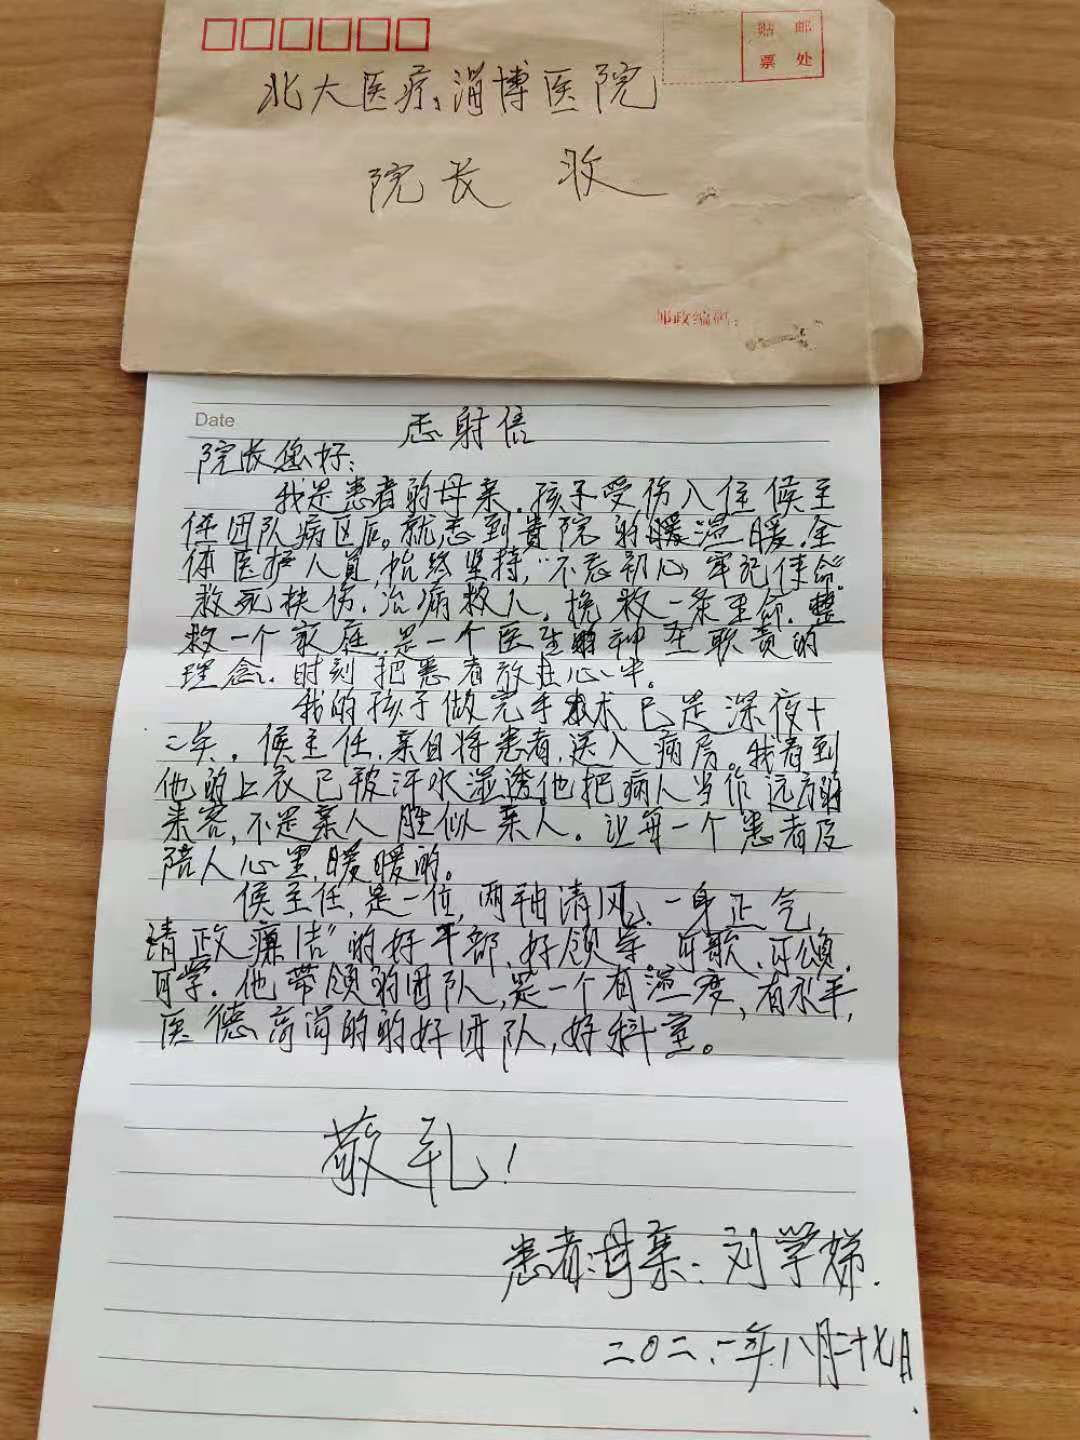 贴 邮
票 处
北大医疗、淄博医院
院长 收
邮政编码:
Date
感谢信
院长您好:
我是患者的母亲.孩子受伤入住 候主
任团队病区后。就感到贵院的暖温暖.全
体医护人员,始终坚持,"不忘初心 牢记使命"
救死扶伤.治病救人。挽救一条生命.整
救一个家庭.是一个医生的神圣职责的
理念.时刻把患者放在心中。
我的孩子做完手术已是深夜十
二点.候主任.亲自将患者.送入病房。我看到
他的上衣已被汗水湿透.他把病人当作远方的
来客,不是亲人胜似亲人。让每一个患者及
陪人心里.暖暖的。
候主任,是一位,两袖清风、一身正气
清政廉洁"的好干部、好领导.可歌.可颂.
可学.他带领的团队,是一个有温度,有水平,
医德高尚的的好团队,好科室。
敬礼!
患者:母亲:刘学娣.
二〇二.一年.八月二十七日